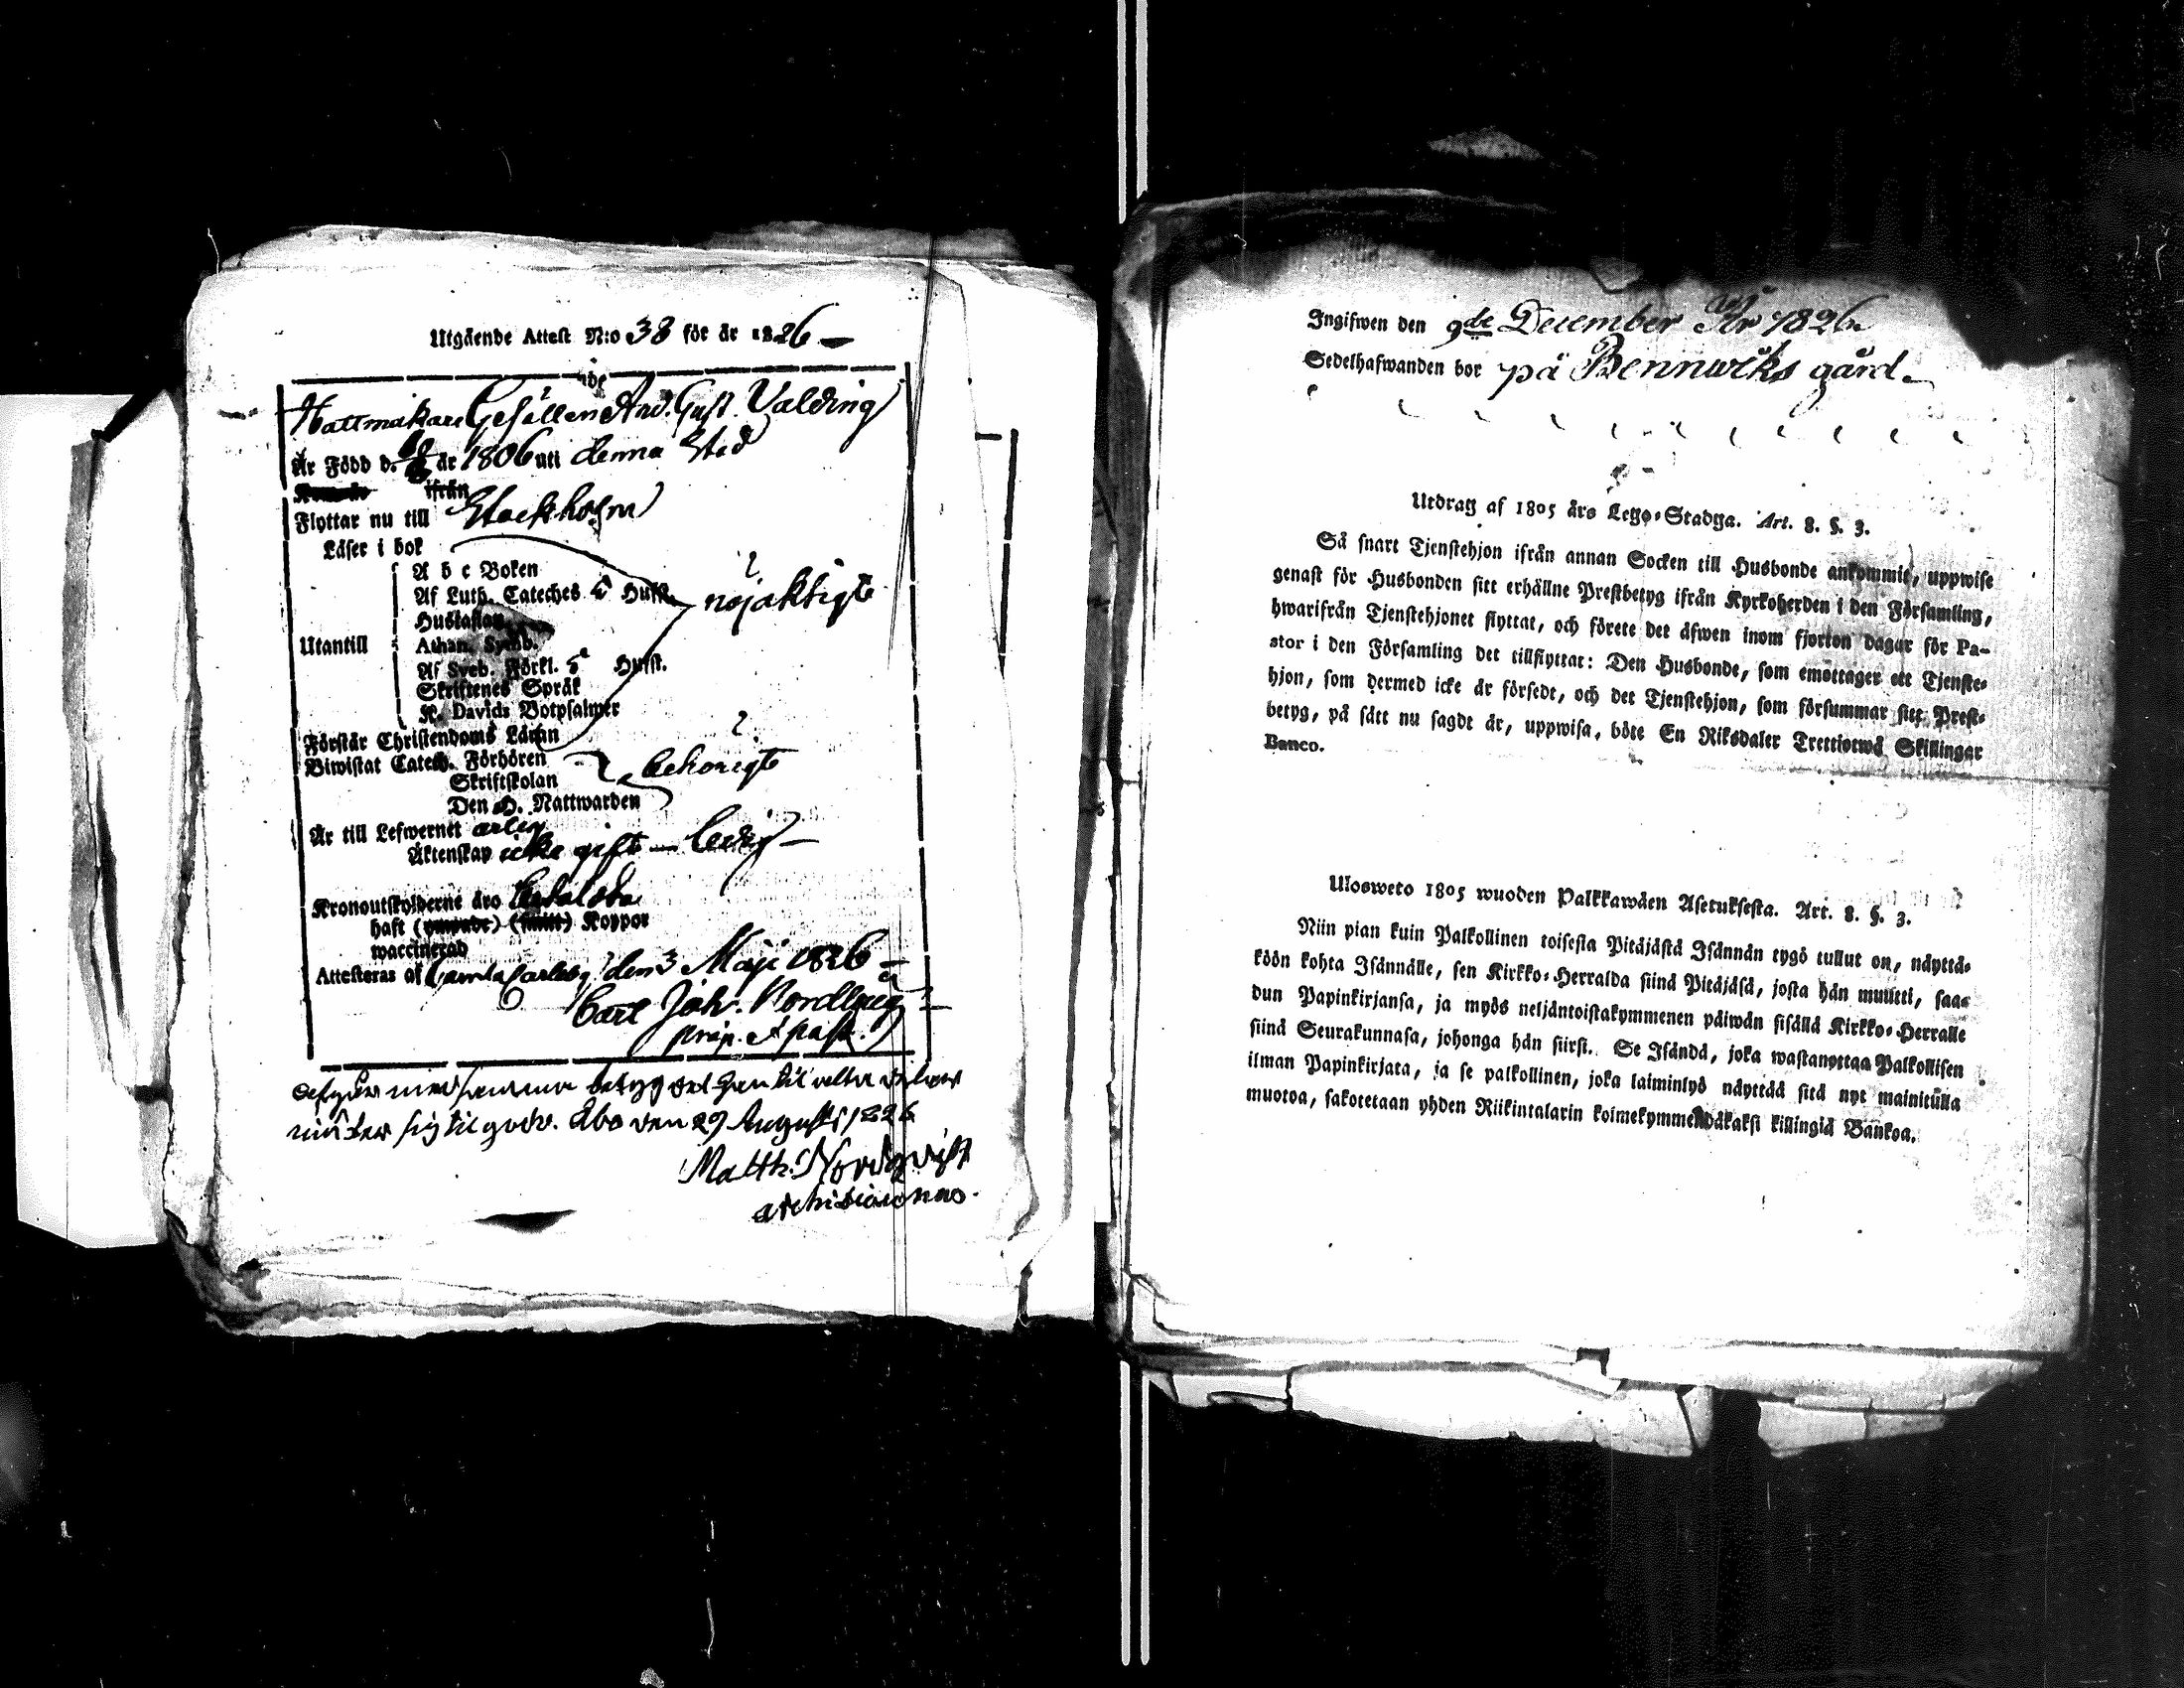 Utgående Attest N:o 38 för år 1826
Hattmakare Gesällen And. Gust. Valding
Är Född d. år 1806 uti denna Stad
ifrån
Flyttar nu till Stockholm
Läser i bok
A b c Boken
Af Luth. Cateches 5 Hufst. nöjaktigt
Hustaflan
Utantill Athan. Symb.
Af Sveb. Förkl. 5 Hufst.
Skriftenes Språk
K. Davids Botpsalmer
Förstår Christendoms Läran
Biwistat Catech. Förhören behörigt
Skriftskolan
Den H. Nattwarden
Är till Lefwernet ärlig
Äktenskap icke gift — ledig —
Kronoutskylderne äro betalda
haft Koppor
waccinerad
Attesteras af Gamla Carleby den 3 Maji 1826
Carl Joh. Nordlung
præp. & past.
med samma betyg
sig til godo. Åbo den 29 Augusti 1826
Matth. Nordqvist
archidiaconus.
Ingifwen den 9de December År 1826
Sedelhafwanden bor på Bennwiks gård
Utdrag af 1805 års Lego-Stadga. Art. 8. §. 3.
Så snart Tjenstehjon ifrån annan Socken till Husbonde ankommit, uppwise
genast för Husbonden sitt erhållne Prestbetyg ifrån Kyrkoherden i den Församling,
hwarifrån Tjenstehjonet flyttat, och förete det äfwen inom fjorton dagar för Pa-
stor i den Församling det tillflyttat: Den Husbonde, som emottager ett Tjenste-
hjon, som dermed icke är försedt, och det Tjenstehjon, som försummar sitt Prest-
betyg, på sätt nu sagdt är, uppwisa, böte En Riksdaler Trettiotwå Skillingar
Banco.
Ulosweto 1805 wuoden Palkkawäen Asetuksesta. Art. 8. §. 3.
Niin pian kuin Palkollinen toisesta Pitäjästä Isännän tygö tullut on, näyttä-
köön kohta Isännälle, sen Kirkko-Herralda siinä Pitäjäsä, josta hän muutti, saa-
dun Papinkirjansa, ja myös neljäntoistakymmenen päiwän sisällä Kirkko-Herralle
siinä Seurakunnasa, johonga hän siirsi. Se Isändä, joka wastanottaa Palkollisen
ilman Papinkirjata, ja se palkollinen, joka laiminlyö näyttää sitä nyt mainitulla
muotoa, sakotetaan yhden Riikintalarin kolmekymmendäkaksi killingiä Bankoa.